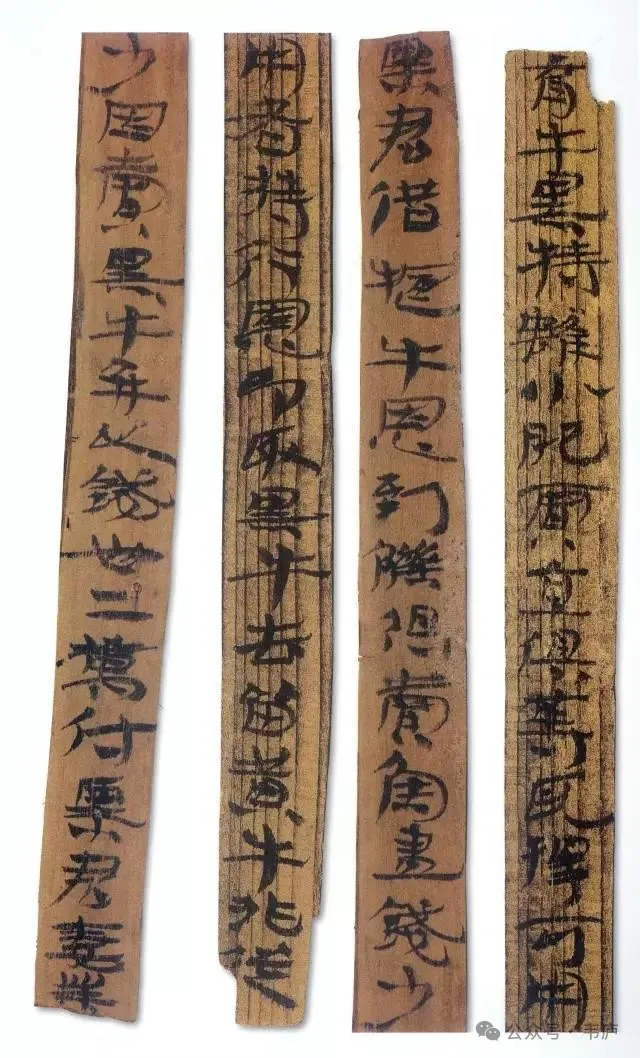 育牛黑特雖小肥賈直俱等耳擇可用
粟君借㸰牛恩到觻得賣魚盡錢少
用者持行恩即取黑牛去留黃牛非從
少因賣黑牛并以錢卅二萬付粟君妻業
公众号·韦庐